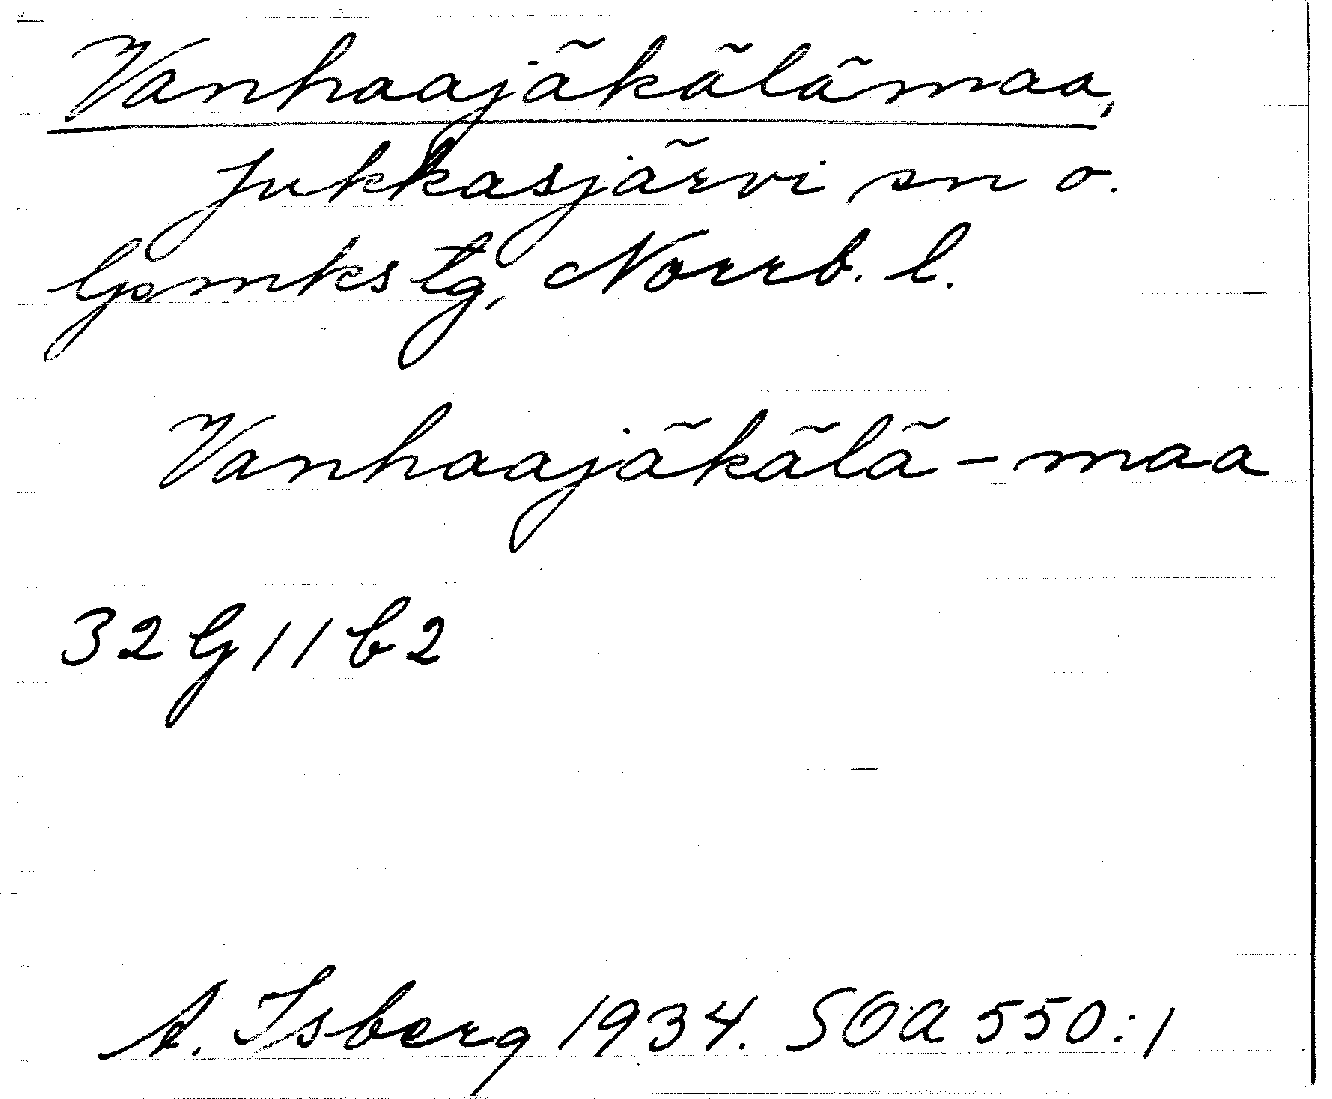 Vanhaajäkälämaa,
Jukkasjärvi sn o.
Gemks tg, Norrb. l.
Vanhaajäkälä-maa
32 G 11 b 2
A. Isberg 1934. SOA 550:1